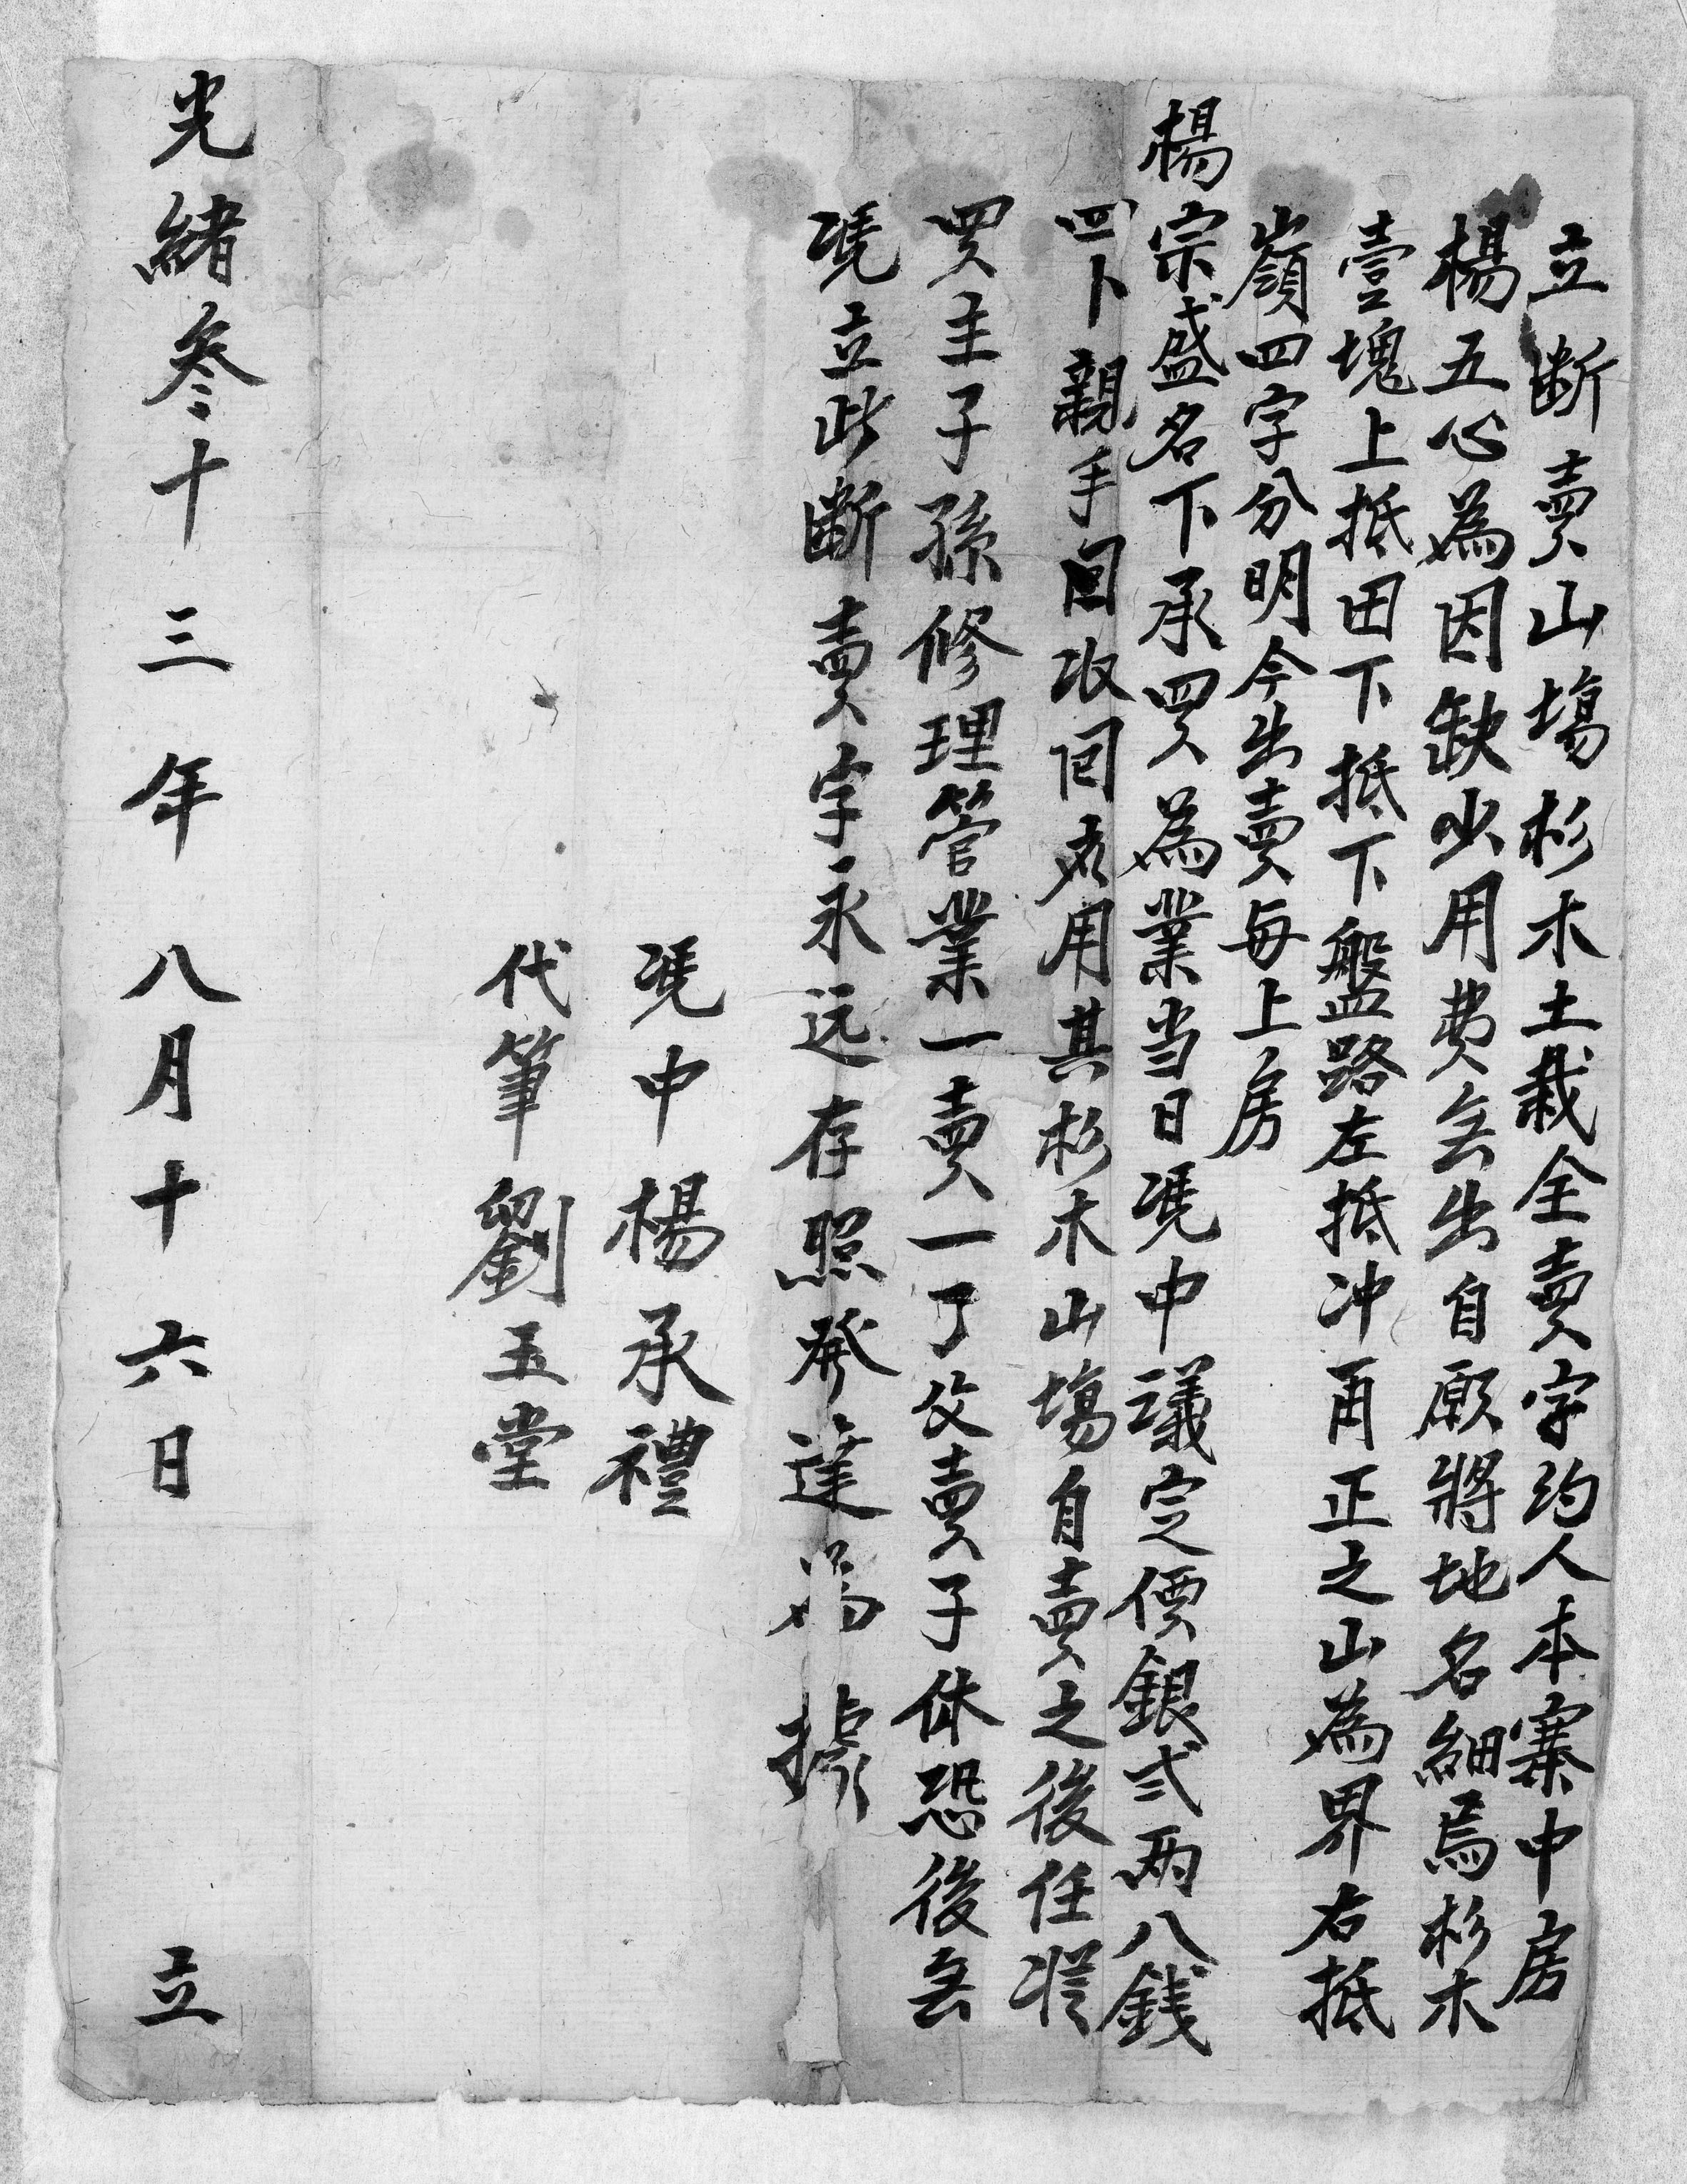 立断賣山塲杉木土栽全賣字約人本寨中房
楊五心為因缺少用費無出自愿將地名細焉杉木
壹塊上抵田下抵下盤路左抵冲再正之山為界右抵
嶺四字分明今出賣每上房
楊宗盛名下承買為業当日凴中議定價銀弍両八銭
四卜親手回収回應用其杉木山塲自賣之後任從
買主子孫修理管業一賣一了父賣子休恐後無
凴立此斷賣字永远存照發達為據
凴中楊承禮
代筆劉玉堂
光緒叁十三年八月十六日立